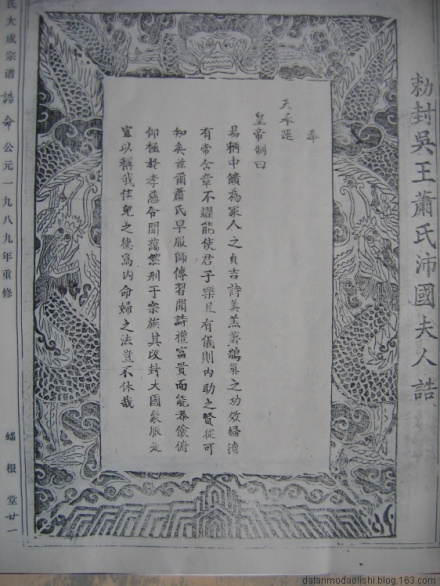 勅封吳王蕭氏沛國夫人誥
奉
天承運
皇帝制曰
易稱中饋為家人之貞吉詩美羔著鵲巢之功效婦道
有常含章不耀能使君子樂且有儀則內助之賢從可
知矣茲爾蕭氏早服師傅習聞詩禮富貴而能恭儉俯
仰極於孝慈令聞藹然刑于宗族其改封大國象服是
宜以稱我佳兒之德為內命婦之法豈不休哉
氏大成宗谱 誥命 公元一九八九年重修 蟠根堂廿一
datanmodaelishi.blog.163.com